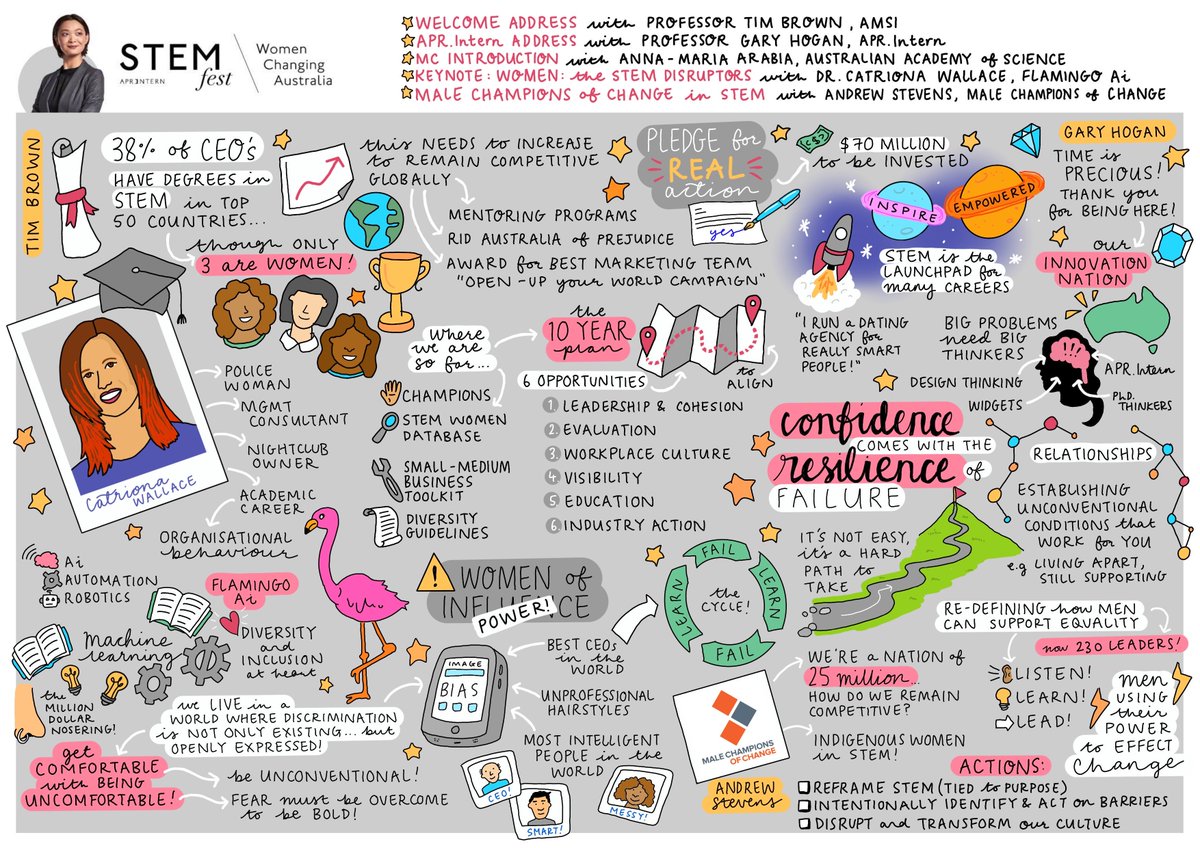 STEM
APR.INTERN
fest
Women
Changing
Australia
WELCOME ADDRESS with PROFESSOR TIM BROWN, AMSI
APR.Intern ADDRESS with PROFESSOR GARY HOGAN, APR.Intern
MC INTRODUCTION with ANNA-MARIA ARABIA, AUSTRALIAN ACADEMY of SCIENCE
KEYNOTE: WOMEN: the STEM DISRUPTORS with DR. CATRIONA WALLACE, FLAMINGO Ai
MALE CHAMPIONS OF CHANGE in STEM with ANDREW STEVENS, MALE CHAMPIONS of CHANGE
TIM BROWN
38% of CEO's
HAVE DEGREES in
STEM in TOP
50 COUNTRIES...
though ONLY
3 are WOMEN!
this NEEDS to INCREASE
to REMAIN COMPETITIVE
GLOBALLY
MENTORING PROGRAMS
RID AUSTRALIA of PREJUDICE
AWARD for BEST MARKETING TEAM
"OPEN-UP your WORLD CAMPAIGN"
PLEDGE for
REAL
action
yes
$70 MILLION
to be INVESTED
INSPIRE
EMPOWERED
STEM is the
LAUNCHPAD for
many CAREERS
GARY HOGAN
TIME is
PRECIOUS!
THANK you
for BEING HERE!
our
INNOVATION
NATION
"I RUN a DATING
AGENCY for
REALLY SMART
PEOPLE!"
BIG PROBLEMS
need BIG
THINKERS
DESIGN THINKING
WIDGETS
APR.Intern
PhD.
THINKERS
Catriona
WALLACE
POLICE
WOMAN
MGMT
CONSULTANT
NIGHTCLUB
OWNER
ACADEMIC
CAREER
ORGANISATIONAL
behaviour
Where
we are
so far...
CHAMPIONS
STEM WOMEN
DATABASE
SMALL-MEDIUM
BUSINESS
TOOLKIT
DIVERSITY
GUIDELINES
the
10 YEAR
plan
to
ALIGN
6 OPPORTUNITIES
1. LEADERSHIP & COHESION
2. EVALUATION
3. WORKPLACE CULTURE
4. VISIBILITY
5. EDUCATION
6. INDUSTRY ACTION
confidence
COMES WITH THE
resilience of
FAILURE
IT'S NOT EASY,
it's a HARD
PATH to
TAKE
RELATIONSHIPS
ESTABLISHING
UNCONVENTIONAL
CONDITIONS that
WORK for YOU
e.g LIVING APART,
STILL SUPPORTING
Ai
AUTOMATION
ROBOTICS
FLAMINGO
Ai
DIVERSITY
and
INCLUSION
at heart
Machine
learning
the
MILLION
DOLLAR
NOSERING!
we LIVE in a
WORLD WHERE DISCRIMINATION
is NOT ONLY EXISTING... but
OPENLY EXPRESSED!
get
COMFORTABLE
with BEING
UNCOMFORTABLE!
be UNCONVENTIONAL!
FEAR must be OVERCOME
to be BOLD!
WOMEN of
INFLUENCE
POWER!
IMAGE
BIAS
BEST CEOs
in the
WORLD
UNPROFESSIONAL
HAIRSTYLES
MOST INTELLIGENT
PEOPLE in the
WORLD
CEO!
SMART!
MESSY!
FAIL
LEARN
FAIL
LEARN
the
CYCLE!
MALE CHAMPIONS
OF CHANGE
ANDREW
Stevens
WE'RE a NATION of
25 million...
HOW DO WE REMAIN
COMPETITIVE?
INDIGENOUS WOMEN
in STEM!
RE-DEFINING how MEN
CAN SUPPORT EQUALITY
now 230 LEADERS!
LISTEN!
LEARN!
LEAD!
men
USING
their
POWER
to EFFECT
Change
ACTIONS:
REFRAME STEM (TIED to PURPOSE)
INTENTIONALLY IDENTIFY & ACT on BARRIERS
DISRUPT and TRANSFORM our CULTURE